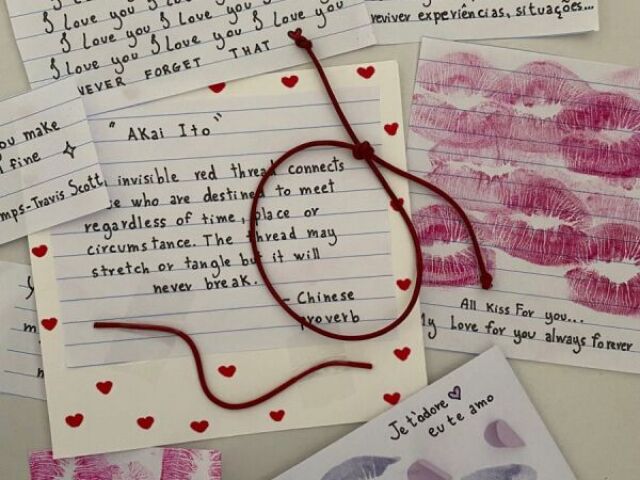 I Love you I Love you I Love you
I Love you I Love you I Love you
NEVER FORGET THAT
reviver experiências, situações...
you make
fine
- Travis Scott
"Akai Ito"
invisible red thread connects
who are destined to meet
regardless of time, place or
circumstance. The thread may
stretch or tangle but it will
never break.
- Chinese
proverb
All Kiss For you...
My Love for you always forever
Je t'adore
eu te amo